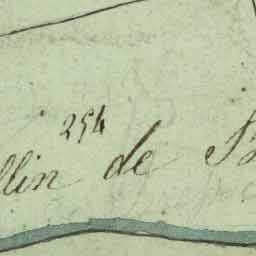 254
llin de